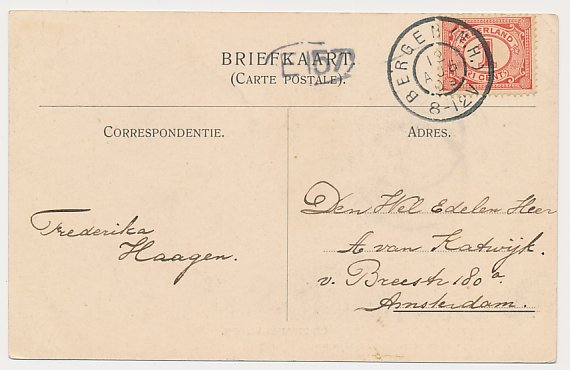 BRIEFKAART
(CARTE POSTALE).
157
BERGEN (N.H.)
8-12V
NEDERLAND
1 CENT
CORRESPONDENTIE.
ADRES.
Frederika
Haagen.
Den Wel Edelen Heer
A van Katwijk.
v. Breestr 180 a.
Amsterdam.